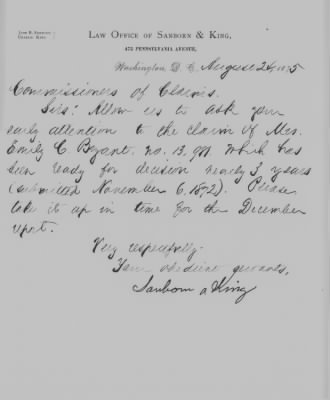 John B. Sanborn
Charles King
LAW OFFICE OF SANBORN & KING,
472 PENNSYLVANIA AVENUE,
Washington, D. C., August 24, 1875
Commissioners of Claims.
Sirs: Allow us to ask your
early attention to the claim of Mrs.
Emily C Bryant. no. 13,901. which has
been ready for decision nearly 3 years
(submitted November 6, 1872). Please
take it up in time for the December
report.
Very respectfully.
Your obedient servants,
Sanborn & King